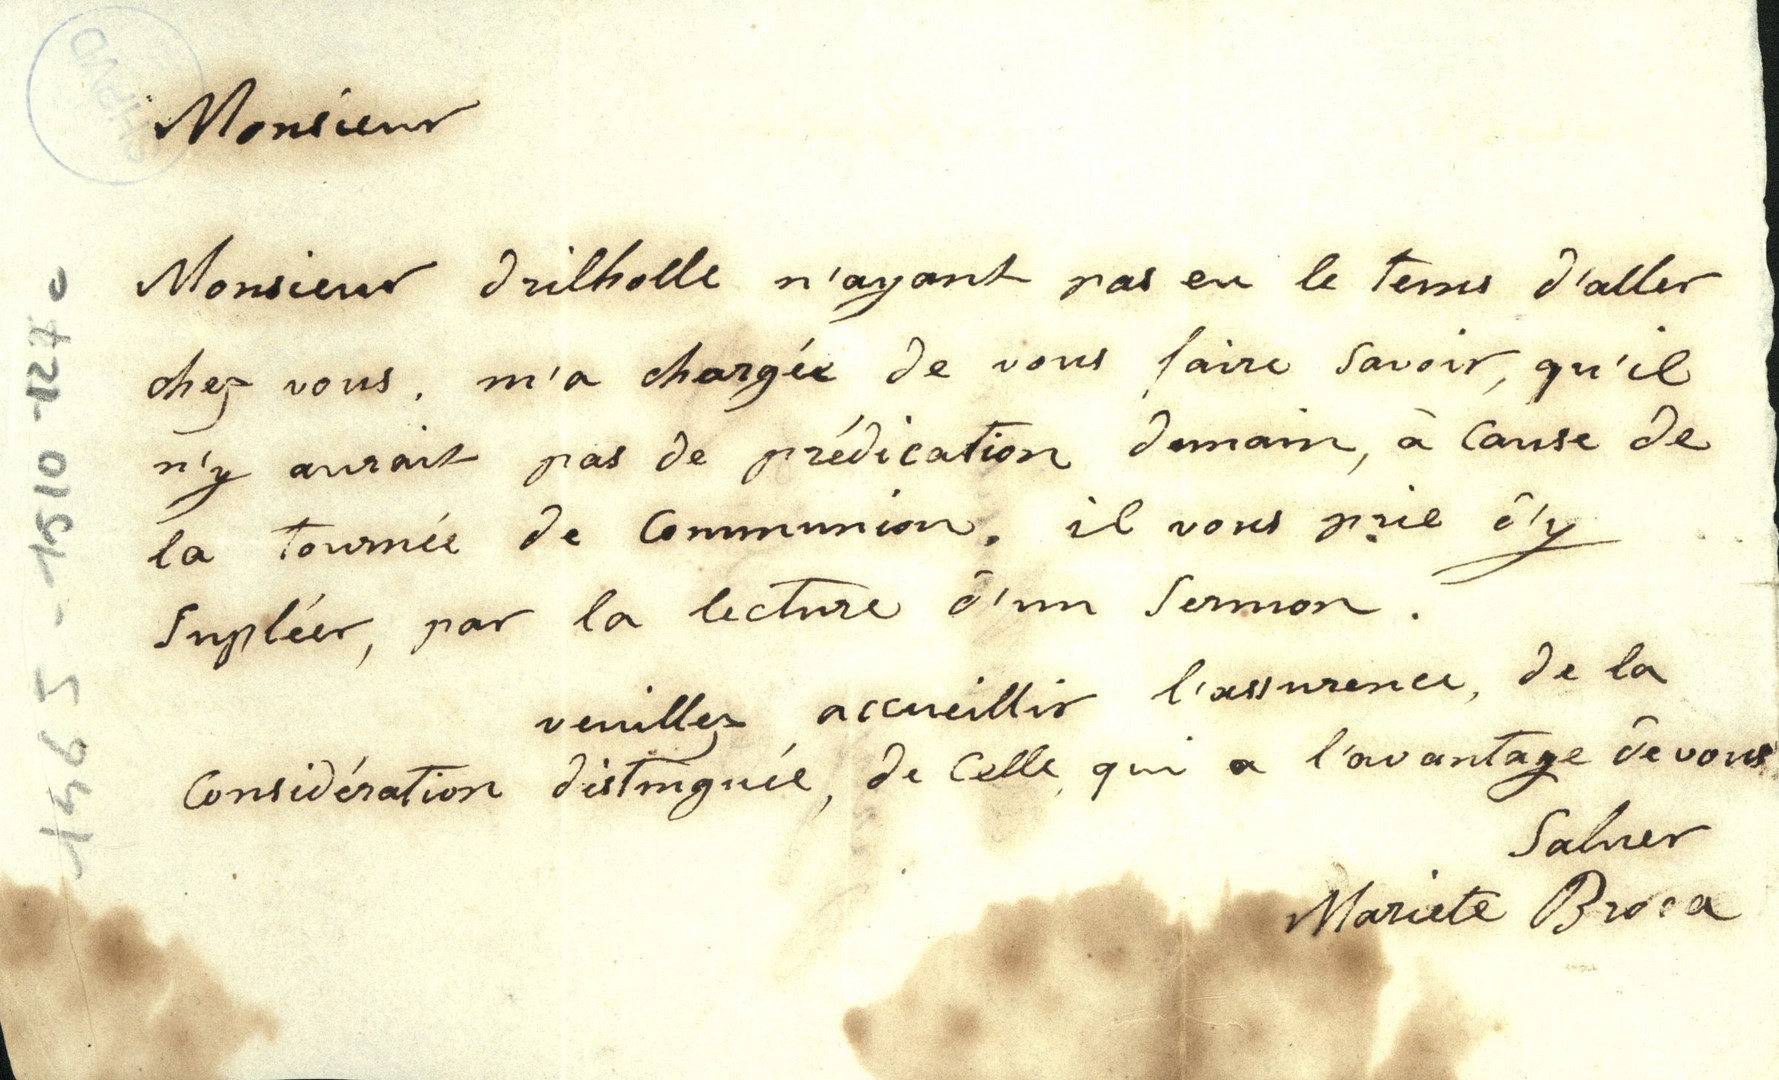 Monsieur
Monsieur drilholle n'ayant pas eu le tems d'aller
chez vous, m'a chargée de vous faire savoir, qu'il
n'y aurait pas de prédication demain, à cause de
la tournée de Communion. il vous prie d'y
Supléer, par la lecture d'un Sermon.
veuillez accueillir l'assurence, de la
Considération distinguée, de Celle qui a l'avantage de vous
Saluer
Mariete Broca